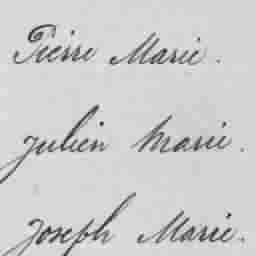 Pierre Marie.
Julien Marie.
Joseph Marie.